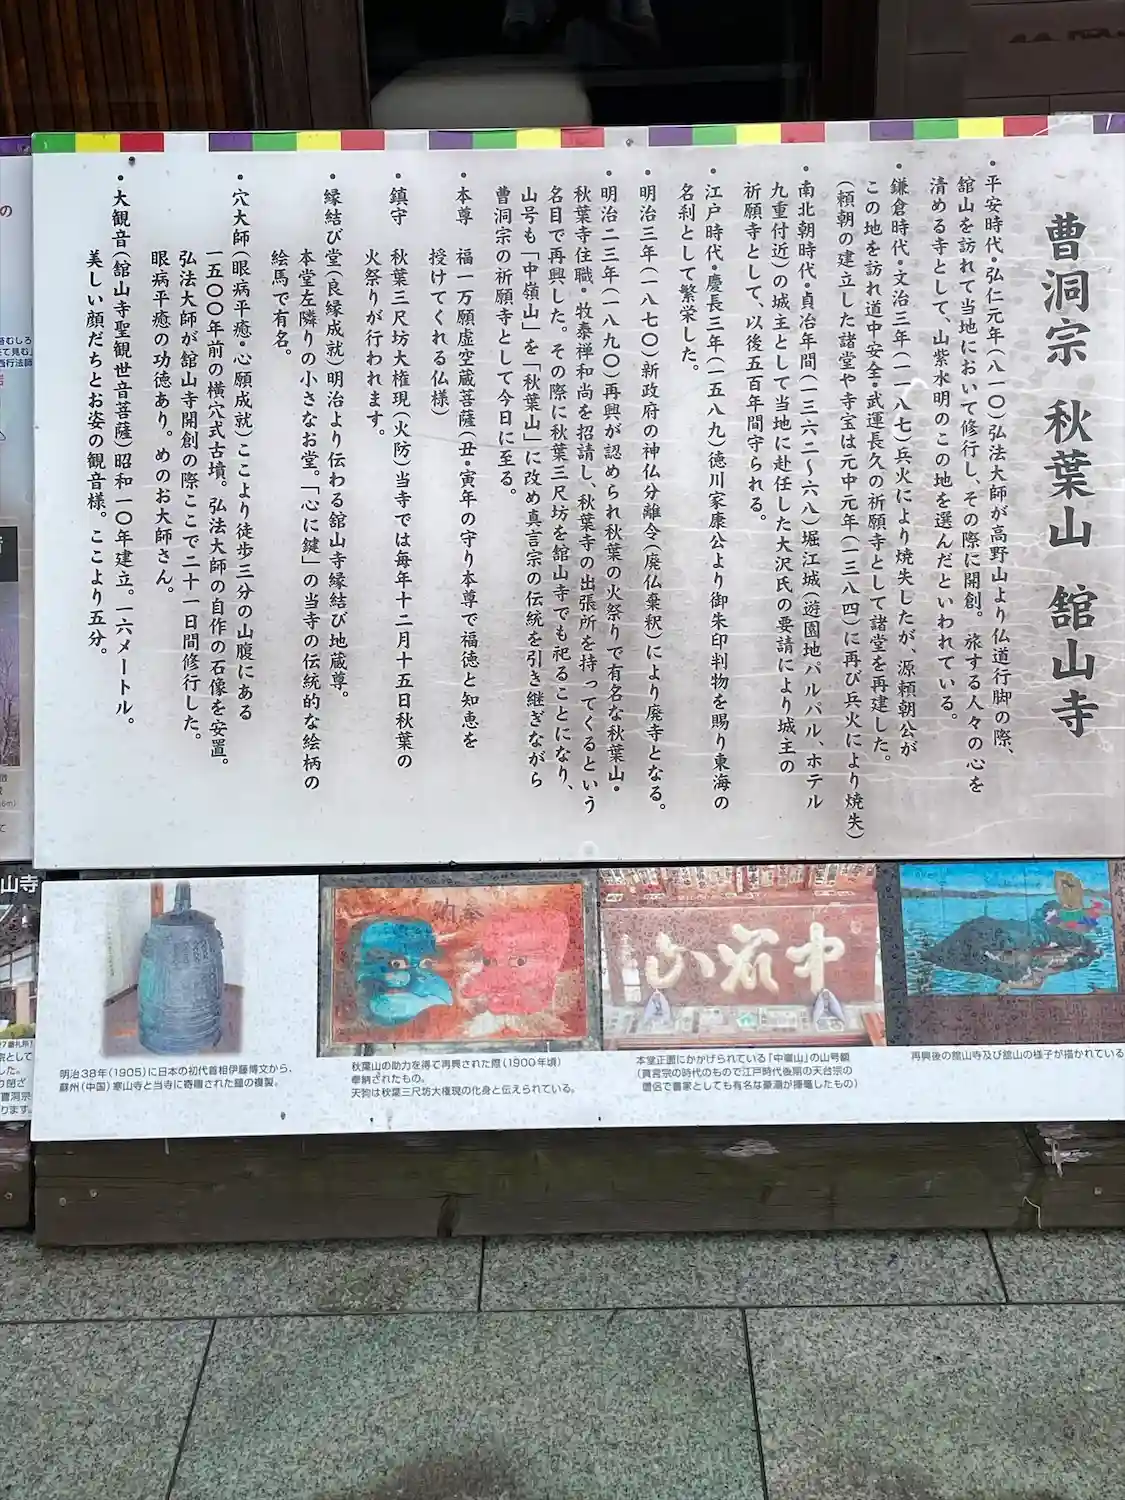 曹洞宗 秋葉山 舘山寺
・平安時代・弘仁元年(八一〇)弘法大師が高野山より仏道行脚の際、
舘山を訪れて当地において修行し、その際に開創。旅する人々の心を
清める寺として、山紫水明のこの地を選んだといわれている。
・鎌倉時代・文治三年(一一八七)兵火により焼失したが、源頼朝公が
この地を訪れ道中安全・武運長久の祈願寺として諸堂を再建した。
(頼朝の建立した諸堂や寺宝は元中元年(一三八四)に再び兵火により焼失)
・南北朝時代・貞治年間(一三六二〜六八)堀江城(遊園地パルパル、ホテル
九重付近)の城主として当地に赴任した大沢氏の要請により城主の
祈願寺として、以後五百年間守られる。
・江戸時代・慶長三年(一五八九)徳川家康公より御朱印判物を賜り東海の
名刹として繁栄した。
・明治三年(一八七〇)新政府の神仏分離令(廃仏棄釈)により廃寺となる。
・明治二三年(一八九〇)再興が認められ秋葉の火祭りで有名な秋葉山・
秋葉寺住職・牧泰禅和尚を招請し、秋葉寺の出張所を持ってくるという
名目で再興した。その際に秋葉三尺坊を舘山寺でも祀ることになり、
山号も「中嶺山」を「秋葉山」に改め真言宗の伝統を引き継ぎながら
曹洞宗の祈願寺として今日に至る。
・本尊 福一万願虚空蔵菩薩(丑・寅年の守り本尊で福徳と知恵を
授けてくれる仏様)
・鎮守 秋葉三尺坊大権現(火防)当寺では毎年十二月十五日秋葉の
火祭りが行われます。
・縁結び堂(良縁成就)明治より伝わる舘山寺縁結び地蔵尊。
本堂左隣りの小さなお堂。「心に鍵」の当寺の伝統的な絵柄の
絵馬で有名。
・穴大師(眼病平癒・心願成就)ここより徒歩三分の山腹にある
一五〇〇年前の横穴式古墳。弘法大師の自作の石像を安置。
弘法大師が舘山寺開創の際ここで二十一日間修行した。
眼病平癒の功徳あり。めのお大師さん。
・大観音(舘山寺聖観世音菩薩)昭和一〇年建立。一六メートル。
美しい顔だちとお姿の観音様。ここより五分。
明治38年(1905)に日本の初代首相伊藤博文から、
蘇州(中国)寒山寺と当寺に寄贈された鐘の複製。
秋葉山の助力を得て再興された際(1900年頃)
奉納されたもの。
天狗は秋葉三尺坊大権現の化身と伝えられている。
中嶺山
本堂正面にかかげられている「中嶺山」の山号額
(真言宗の時代のもので江戸時代後期の天台宗の
僧侶で書家としても有名な豪潮が揮毫したもの)
再興後の舘山寺及び舘山の様子が描かれている